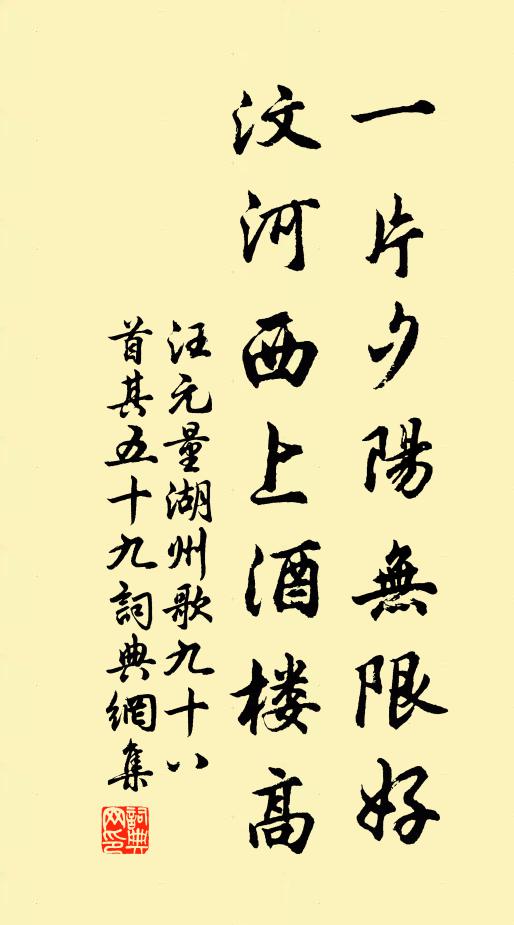 一片夕陽無限好
汶河西上酒楼高
汪元量湖州歌九十八
首其五十九詞典網集
詞典
网印